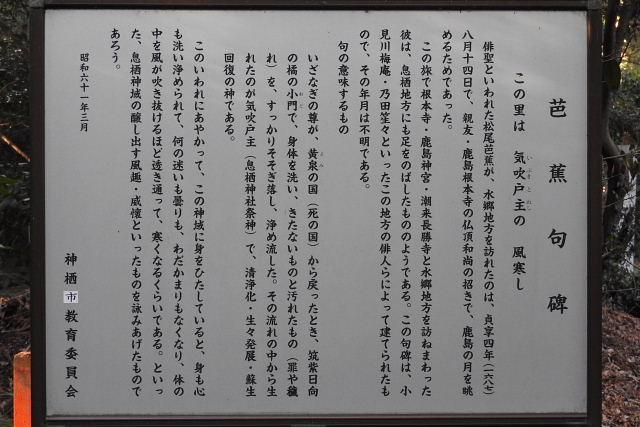 芭蕉句碑
この里は 気吹戸主の 風寒し
いぶきどぬし
俳聖といわれた松尾芭蕉が、水郷地方を訪れたのは、貞享四年(一六八七)
八月十四日で、親友・鹿島根本寺の仏頂和尚の招きで、鹿島の月を眺
めるためであった。
この旅で根本寺・鹿島神宮・潮来長勝寺と水郷地方を訪ねまわった
彼は、息栖地方にも足をのばしたもののようである。この句碑は、小
見川梅庵・乃田笙々といったこの地方の俳人らによって建てられたも
ので、その年月は不明である。
句の意味するもの
いざなぎの尊が、黄泉の国(死の国)から戻ったとき、筑紫日向
よみ
の橘の小門で、身体を洗い、きたないものと汚れたもの(罪や穢
おど
れ)を、すっかりそそぎ落し、浄め流した。その流れの中から生
れたのが気吹戸主(息栖神社祭神)で、清浄化・生々発展・蘇生
回復の神である。
このいわれにあやかって、この神域に身をひたしていると、身も心
も洗い浄められて、何の迷いも曇りも、わだかまりもなくなり、体の
中を風が吹き抜けるほど透き通って、寒くなるくらいである。といっ
た、息栖神域の醸し出す風趣・感懐といったものを詠みあげたもので
あろう。
昭和六十一年三月
神栖市教育委員会